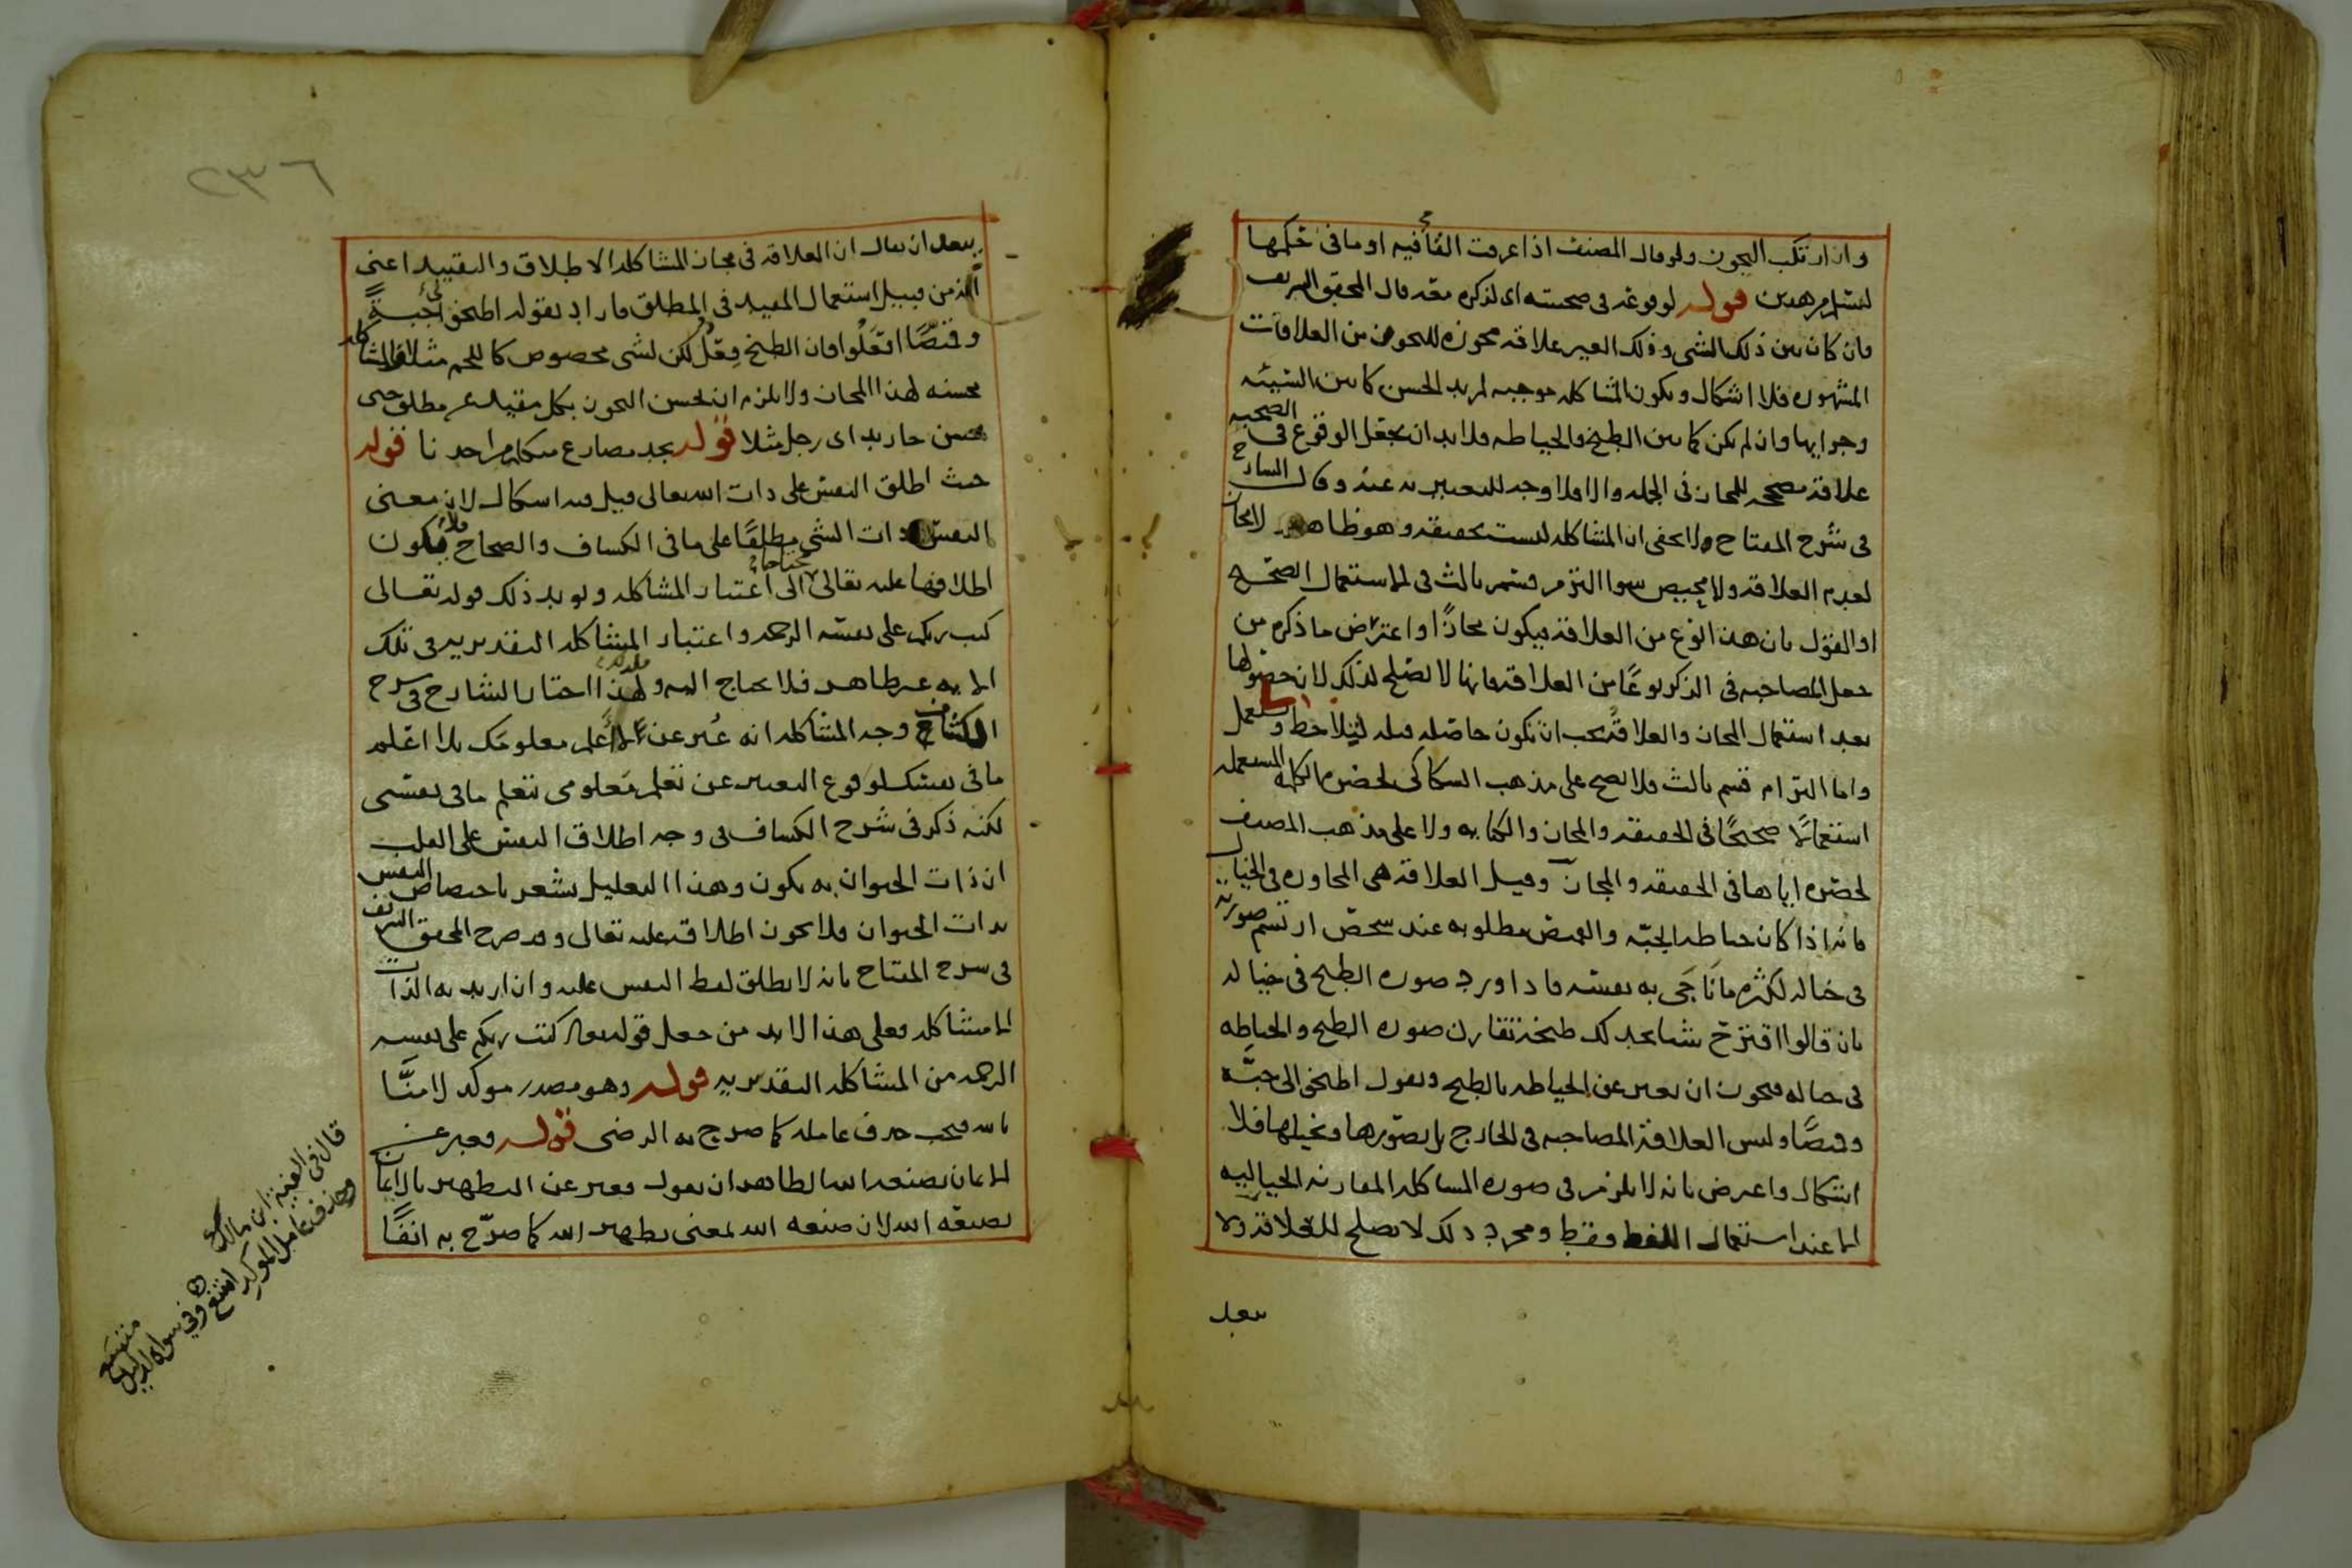 وان ارتكب التجوز ولو قال المصنف اذا عرفت الفأ فيه او ما فى حكمها
ليشمل هذين قوله لوقوعه فى صحبته اى لذكره معه قال المحقق الشريف
فان كان بين ذلك الشى وذلك الغير علاقة مجوزة للتجوز من العلاقات
المشهورة فلا اشكال وتكون المشاكلة موجبه لمزيد الحسن كما بين السيئه
وجزايها وان لم يكن كما بين الطبخ والخياطه فلا بد ان يجعل الوقوع فى الصحبه
علاقة مصححه للمجاز فى الجمله والا فلا وجه للتعبير به عنه وقال الشارح
فى شرح المفتاح ولا يخفى ان المشاكله ليست بحقيقه وهو ظاهر ولا مجاز
لعدم العلاقه ولا محيص سوا التزام قسم ثالث فى الاستعمال الصحيح
او القول بان هذا النوع من العلاقة فيكون مجازًا واعترض ما ذكره من
جعل المصاحبه فى الذكر نوعًا من العلاقة بانها لا تصلح لذلك لان حصولها
بعد استعمال المجاز والعلاقة يجب ان تكون حاصله قبله ليلاحظ ويستعمل
واما التزام قسم ثالث فلا يصح على مذهب السكاكى لحصره الكلمه المستعمله
استعمالًا صحيحًا فى الحقيقه والمجاز والكنايه ولا على مذهب المصنف
لحصره اياها فى الحقيقه والمجاز وقيل العلاقه هى المجاوره فى الخيال
فانه اذا كان خياطه الجبّه والقميص مطلوبه عند شخص ارتسم صورته
فى خياله لكثرة ما ناجى به نفسه فاذا ورد صوره الطبخ فى خياله
بان قالوا اقترح شيا نجد لك طبخه تقارن صوره الطبخ والخياطه
فى خياله فيجوز ان يعبر عن الخياطه بالطبخ ويقول اطبخوا لى جبّه
وقميصًا وليس العلاقة المصاحبه فى الخارج بل تصورها وتخيلها فلا
اشكال واعترض بانه لا يلزم فى صوره المشاكله المقارنه الخياليه
الا عند استعمال اللفظ فقط ومجرد ذلك لا يصلح للعلاقة ولا
يبعد
٢٣٦
يبعد ان يقال ان العلاقة فى مجاز المشاكله الاطلاق والتقييد اعنى
انه من قبيل استعمال المقيد فى المطلق فاراد بقوله اطبخوا لى جبةً
وقميصًا افعلوا فان الطبخ فعلٌ لكن لشى مخصوص كاللحم مثلا فالمشاكله
محسنه لهذا المجاز ولا يلزم ان يحسن التجوز بكل مقيد عن مطلق حتى
يحسن جا زيد اى رجل مثلا قوله نجد مضارع متكلم من اجدنا قوله
حيث اطلق النفس على ذات الله تعالى قيل فيه اشكال لان معنى
النفس ذات الشى مطلقًا على ما فى الكشاف والصحاح فلا يكون
اطلاقها عليه تعالى محتاجا الى اعتبار المشاكله ويويد ذلك قوله تعالى
كتب ربكم على نفسه الرحمه واعتبار المشاكله التقديريه فى تلك
الايه غير ظاهر فلا يحتاج اليه ولهذا اختار الشارح فى شرح
الكشاف وجه المشاكله انه عُبر عن لا اعلم معلومك بلا اعلم
ما فى نفسك لوقوع التعبير عن تعلم معلومى بتعلم ما فى نفسى
لكنه ذكر فى شرح الكشاف فى وجه اطلاق النفس على القلب
ان ذات الحيوان به يكون وهذا التعليل يشعر باختصاص النفس
بذات الحيوان فلا يجوز اطلاقه عليه تعالى وقد صرح المحقق الشريف
فى شرح المفتاح بانه لا يطلق لفظ النفس عليه وان اريد به الذات
الا مشاكله فعلى هذا لا بد من جعل قوله تعالى كتب ربكم على نفسه
الرحمه من المشاكله التقديريه قوله وهو مصدر موكد لامنّا
بالله فيجب حذف عامله كما صرح به الرضى قوله فعبر عن
الايمان بصبغه الله الظاهر ان يقول فعبر عن التطهير بالايمان
بصبغه الله لان صبغه الله بمعنى تطهير الله كما صرّح به انفًا
قال فى الفيه ابن مالك
وحذف عامل الموكد امتنع وفى سواه لدليل متسع